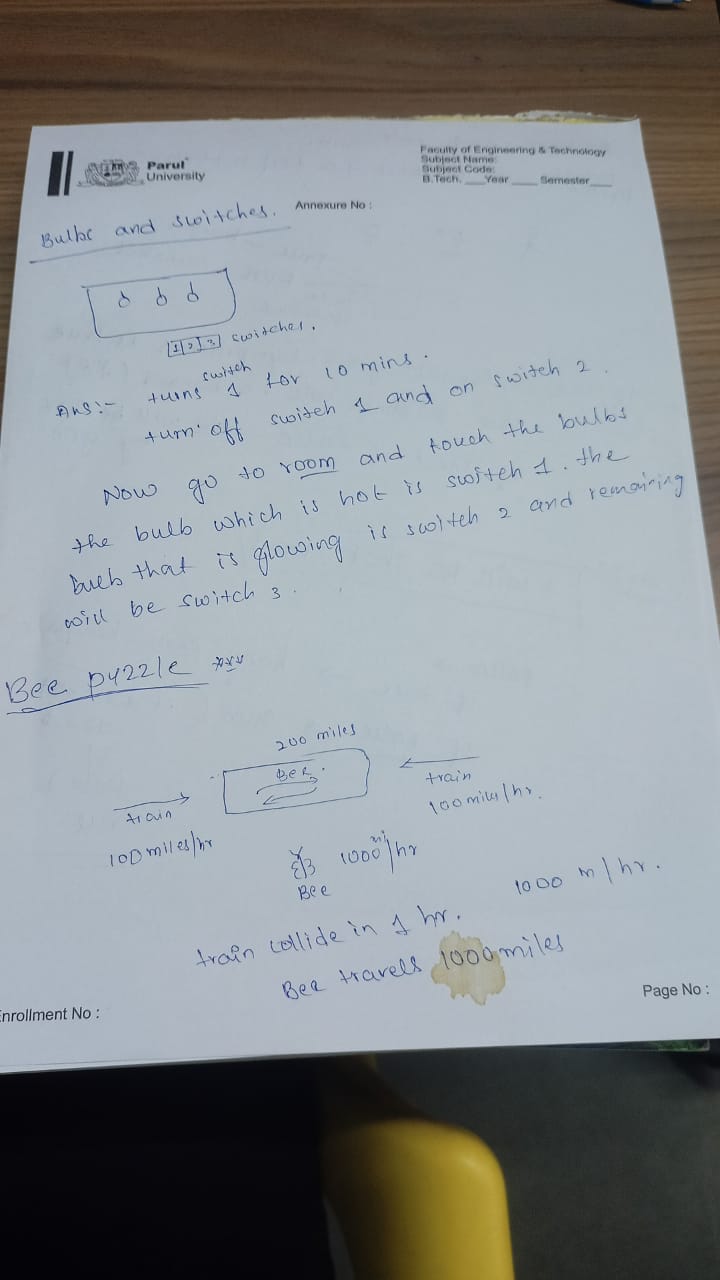 Parul
University
Faculty of Engineering & Technology
Subject Name:
Subject Code:
B.Tech. ___Year ____ Semester____
Annexure No :
Bulbs and switches.
1 2 3 switches.
Ans :- turns switch 1 for 10 mins.
turn off switch 1 and on switch 2.
Now go to room and touch the bulbs
the bulb which is hot is switch 1. the
bulb that is glowing is switch 2 and remaining
will be switch 3.
Bee puzzle ***
200 miles
Bee.
train
100 miles/hr
train
100 miles/hr.
1000 mi/hr
Bee
1000 m/hr.
train collide in 1 hr.
Bee travels 1000 miles
Enrollment No :
Page No :